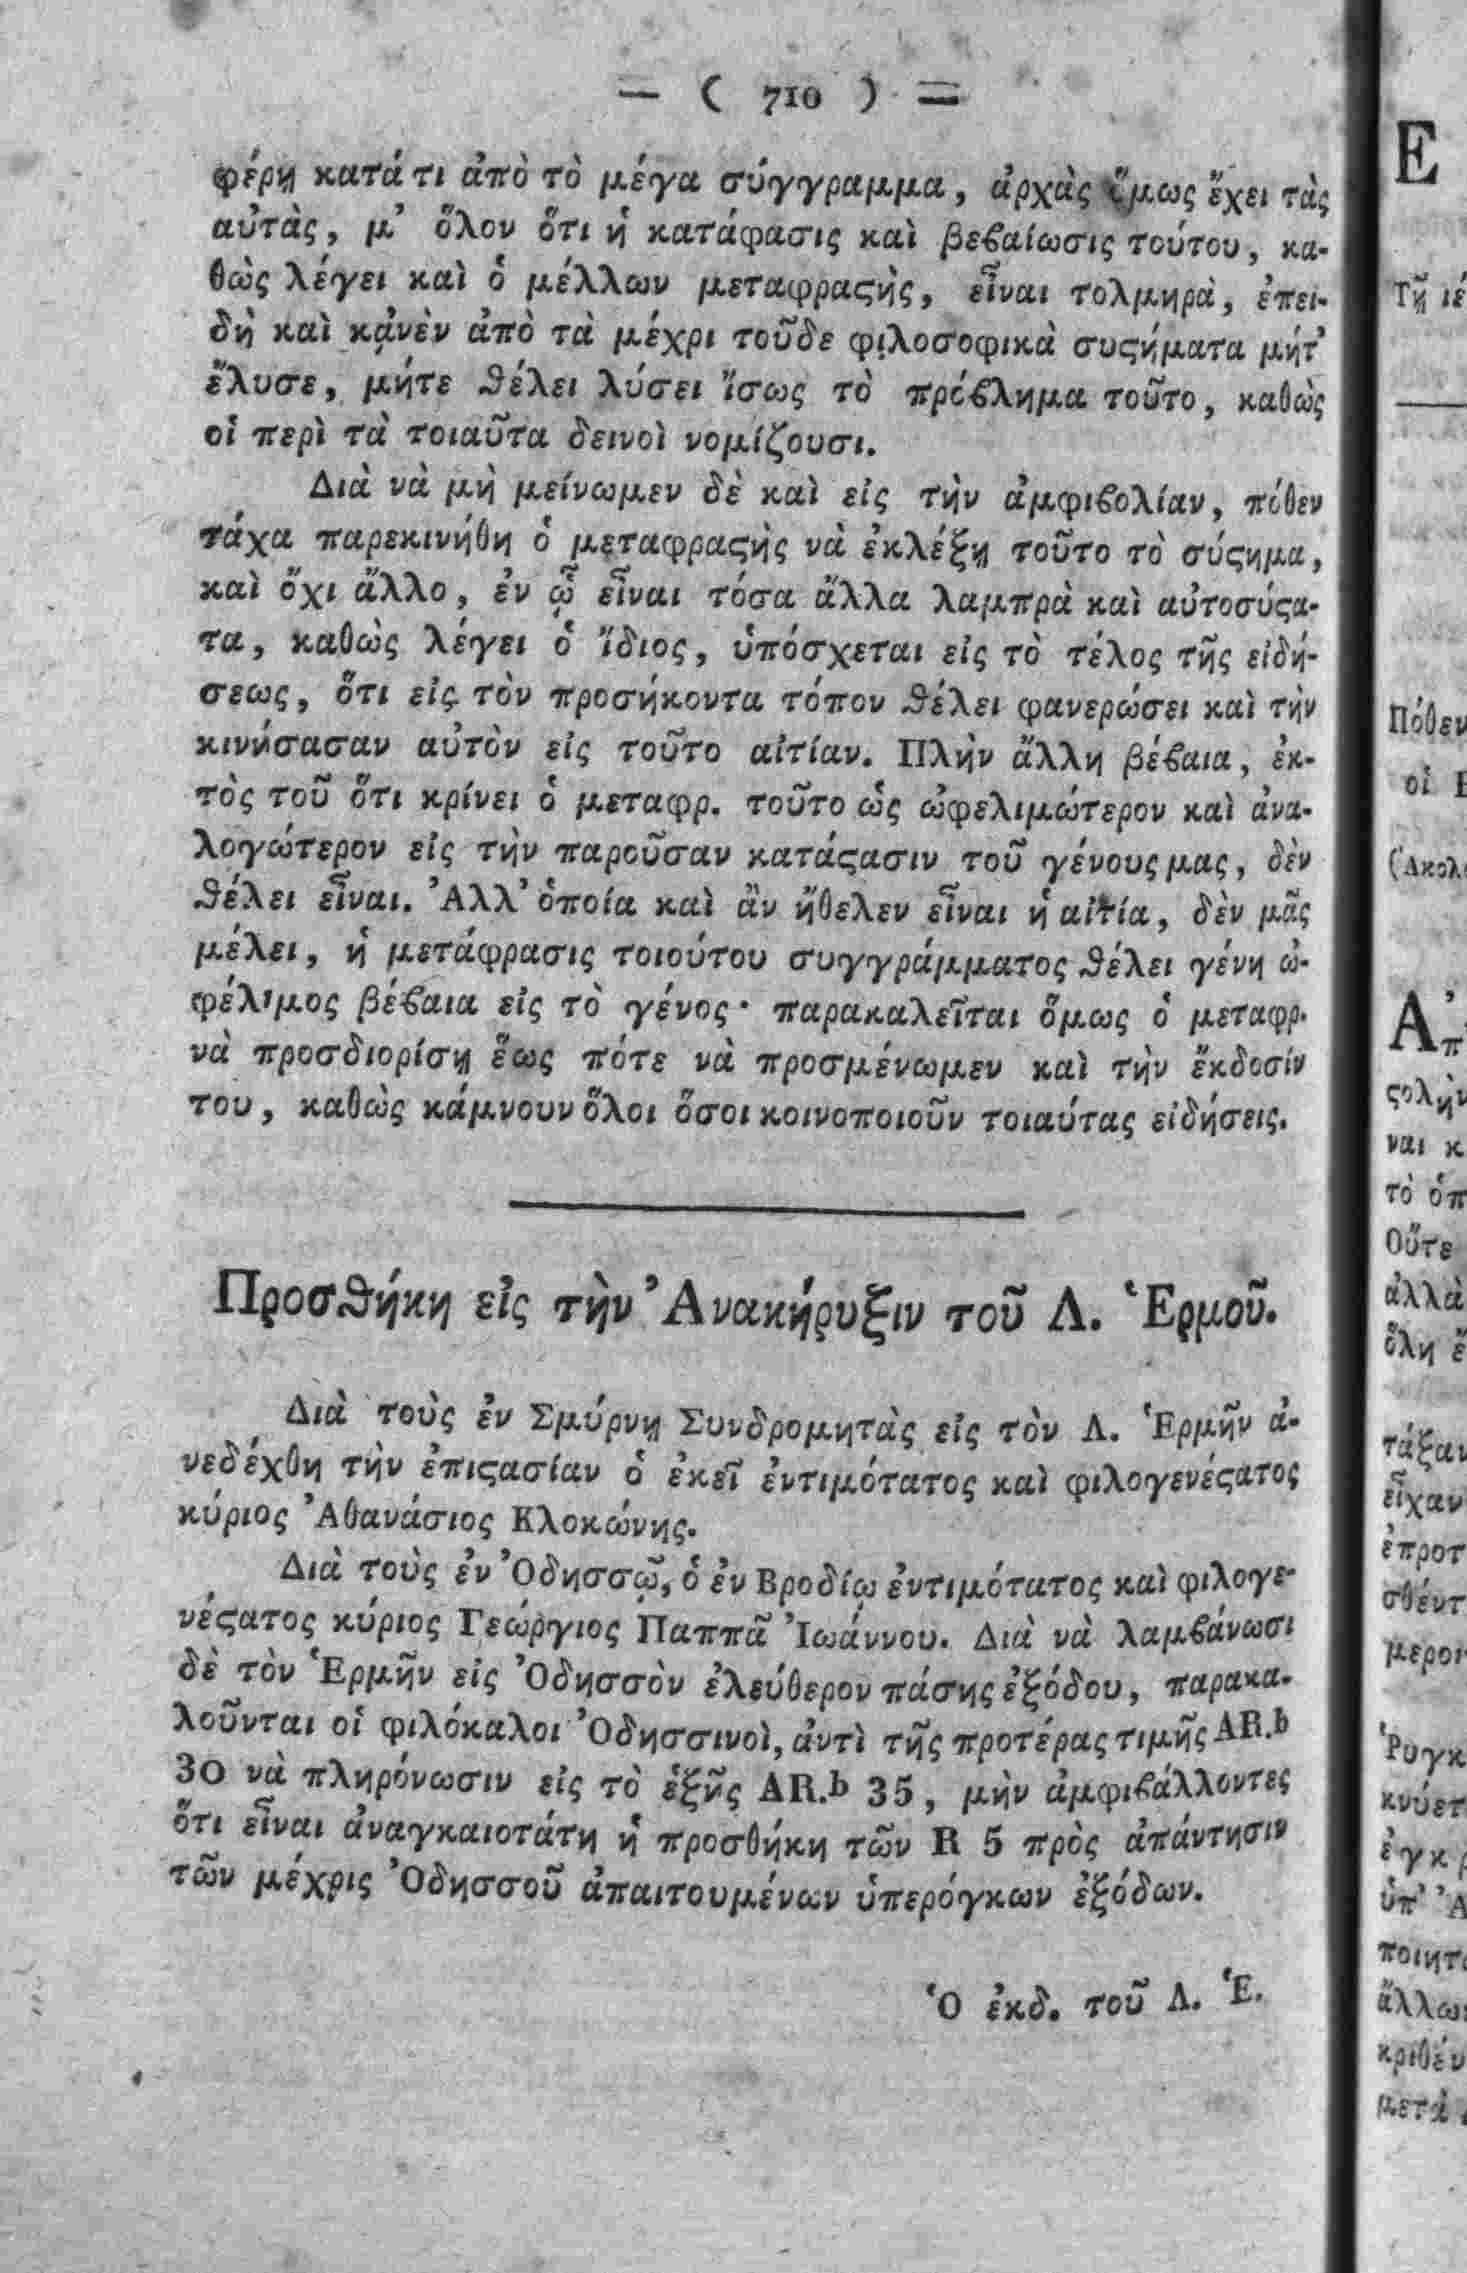 — ( 710 ) =
φέρῃ κατά τι ἀπὸ τὸ μέγα σύγγραμμα, ἀρχὰς ὅμως ἔχει τὰς
αὐτὰς, μ' ὅλον ὅτι ἡ κατάφασις καὶ βεβαίωσις τούτου, κα-
θὼς λέγει καὶ ὁ μέλλων μεταφραςὴς, εἶναι τολμηρὰ, ἐπει-
δὴ καὶ κᾀνὲν ἀπὸ τὰ μέχρι τοῦδε φιλοσοφικὰ συςήματα μήτ'
ἔλυσε, μήτε θέλει λύσει ἴσως τὸ πρόβλημα τοῦτο, καθὼς
οἱ περὶ τὰ τοιαῦτα δεινοὶ νομίζουσι.
Διὰ νὰ μὴ μείνωμεν δὲ καὶ εἰς τὴν ἀμφιβολίαν, πόθεν
τάχα παρεκινήθη ὁ μεταφραςὴς νὰ ἐκλέξῃ τοῦτο τὸ σύςημα,
καὶ ὄχι ἄλλο, ἐν ᾧ εἶναι τόσα ἄλλα λαμπρὰ καὶ αὐτοσύςα-
τα, καθὼς λέγει ὁ ἴδιος, ὑπόσχεται εἰς τὸ τέλος τῆς εἰδή-
σεως, ὅτι εἰς τὸν προσήκοντα τόπον θέλει φανερώσει καὶ τὴν
κινήσασαν αὐτὸν εἰς τοῦτο αἰτίαν. Πλὴν ἄλλη βέβαια, ἐκ-
τὸς τοῦ ὅτι κρίνει ὁ μεταφρ. τοῦτο ὡς ὠφελιμώτερον καὶ ἀνα-
λογώτερον εἰς τὴν παροῦσαν κατάςασιν τοῦ γένους μας, δὲν
θέλει εἶναι. Ἀλλ' ὁποία καὶ ἂν ἤθελεν εἶναι ἡ αἰτία, δὲν μᾶς
μέλει, ἡ μετάφρασις τοιούτου συγγράμματος θέλει γένῃ ὠ-
φέλιμος βέβαια εἰς τὸ γένος· παρακαλεῖται ὅμως ὁ μεταφρ.
νὰ προσδιορίσῃ ἕως πότε νὰ προσμένωμεν καὶ τὴν ἔκδοσίν
του, καθὼς κάμνουν ὅλοι ὅσοι κοινοποιοῦν τοιαύτας εἰδήσεις.
Προσθήκη εἰς τὴν Ἀνακήρυξιν τοῦ Λ. Ἑρμοῦ.
Διὰ τοὺς ἐν Σμύρνῃ Συνδρομητὰς εἰς τὸν Λ. Ἑρμῆν ἀ-
νεδέχθη τὴν ἐπιςασίαν ὁ ἐκεῖ ἐντιμότατος καὶ φιλογενέςατος
κύριος Ἀθανάσιος Κλοκώνης.
Διὰ τοὺς ἐν Ὀδησσῷ, ὁ ἐν Βροδίῳ ἐντιμότατος καὶ φιλογε-
νέςατος κύριος Γεώργιος Παππᾶ Ἰωάννου. Διὰ νὰ λαμβάνωσι
δὲ τὸν Ἑρμῆν εἰς Ὀδησσὸν ἐλεύθερον πάσης ἐξόδου, παρακα-
λοῦνται οἱ φιλόκαλοι Ὀδησσινοὶ, ἀντὶ τῆς προτέρας τιμῆς AR.b
30 νὰ πληρόνωσιν εἰς τὸ ἑξῆς AR.b 35, μὴν ἀμφιβάλλοντες
ὅτι εἶναι ἀναγκαιοτάτη ἡ προσθήκη τῶν R 5 πρὸς ἀπάντησιν
τῶν μέχρις Ὀδησσοῦ ἀπαιτουμένων ὑπερόγκων ἐξόδων.
Ὁ ἐκδ. τοῦ Λ. Ἑ.
Ε
Τῇ ιέ
Πόθεν
οἱ
(Ἀκολ
Ἀπ
ςολὴν
ναι κ
τὸ ὁπ
Οὔτε
ἀλλὰ
ὅλη ἔ
τάξαν
εἶχαν
ἐπροτ
σθέντ
μεροι
Ῥυγκ
κνύετ
ἐγκρ
ὑπ' Ἀ
ποιητ
ἄλλω
κριθέν
μετὰ